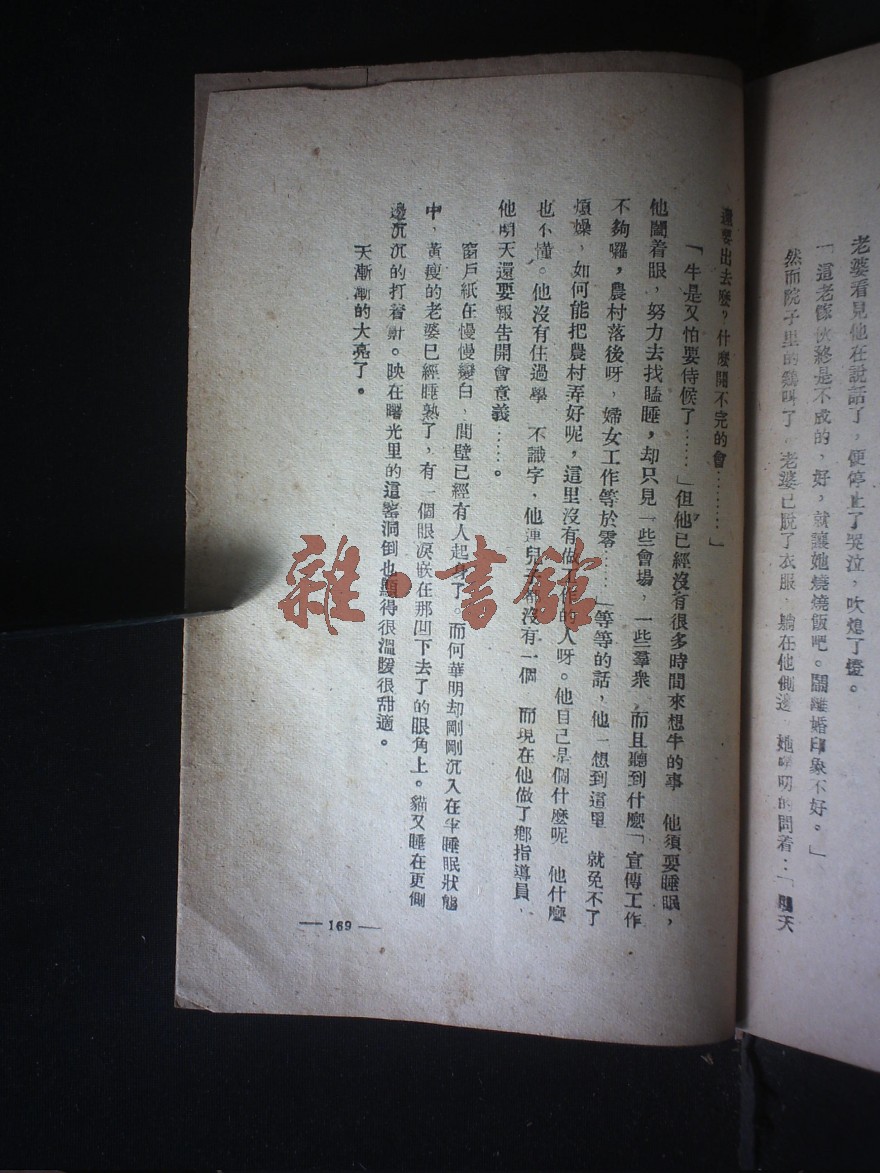 老婆看見他在說話了，便停止了哭泣，吹熄了燈。
「這老傢伙終是不成的，好，就讓她燒燒飯吧。鬧離婚印象不好。」
然而院子里的鷄叫了，老婆已脫了衣服，躺在他側邊，她嘮叨的問着：「明天
還要出去麼，什麼開不完的會………」
「牛是又怕要侍候了……」但他已經沒有很多時間來想牛的事 他須要睡眠，
他闔着眼，努力去找瞌睡，却只見一些會場，一些羣衆，而且聽到什麼「宣傳工作
不夠囉，農村落後呀，婦女工作等於零……」等等的話，他一想到這里 就免不了
煩燥，如何能把農村弄好呢，這里沒有做工作的人呀。他自己是個什麼呢 他什麼
也不懂。他沒有住過學 不識字，他連兒子都沒有一個 而現在他做了鄉指導員，
他明天還要報告開會意義……。
窗戶紙在慢慢變白，間壁已經有人起身了。而何華明却剛剛沉入在半睡眠狀態
中，黃瘦的老婆已經睡熟了，有一個眼淚嵌在那凹下去了的眼角上。貓又睡在更側
邊沉沉的打着鼾。映在曙光里的這窰洞倒也顯得很溫暖很甜適。
天漸漸的大亮了。
— 169 —
雜·書館